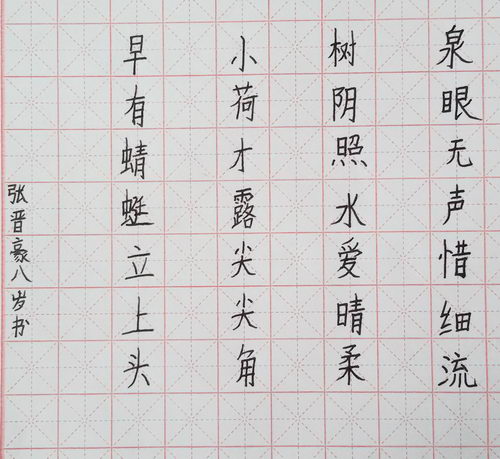 泉眼无声惜细流
树阴照水爱晴柔
小荷才露尖尖角
早有蜻蜓立上头
张晋豪八岁书